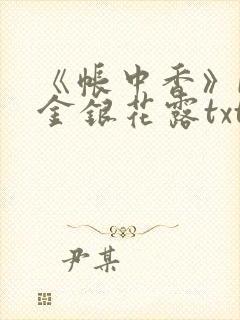 《帐中香》
金银花露txt
尹某